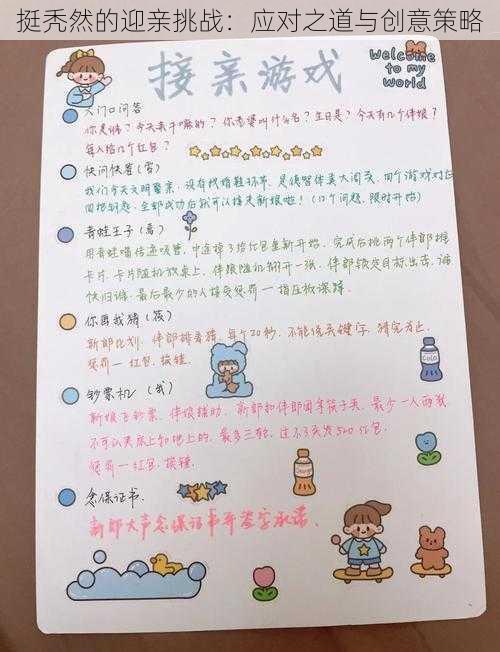 挺秃然的迎亲挑战：应对之道与创意策略
Welcome to my world
接亲游戏
入门口问答
你是谁？今天来干嘛的？你老婆叫什么名？生日是？今天有几个伴娘？
每人给几个红包？
快问快答
我们今天文明娶亲，没有找婚鞋环节，是保智伴类大闯关，四个游戏对应
四把钥匙，全部成功后就可以接走新娘啦！（17个问题，限时开始）
青蛙王子
用青蛙嘴传递吸管，中途掉了给红包重新开始，完成后挑两个伴郎推
卡片，卡片随机放桌上，伴娘随机翻开一张，伴郎锁定目标出击，谁
快归谁，最后最少的人接受惩罚一指压板深蹲。
你画我猜
新郎比划，伴郎排着猜，每个20秒，不能说关键字，猜完为止，
惩罚一红包、按锤。
钞票机
新娘飞钞票，伴娘辅助，新郎和伴郎用筷子夹，最少一人两张
不可以夹床上和地上的，最多三轮，达不到夹发500红包，
惩罚一红包、按锤。
念保证书
新郎大声念保证书并签字承诺。